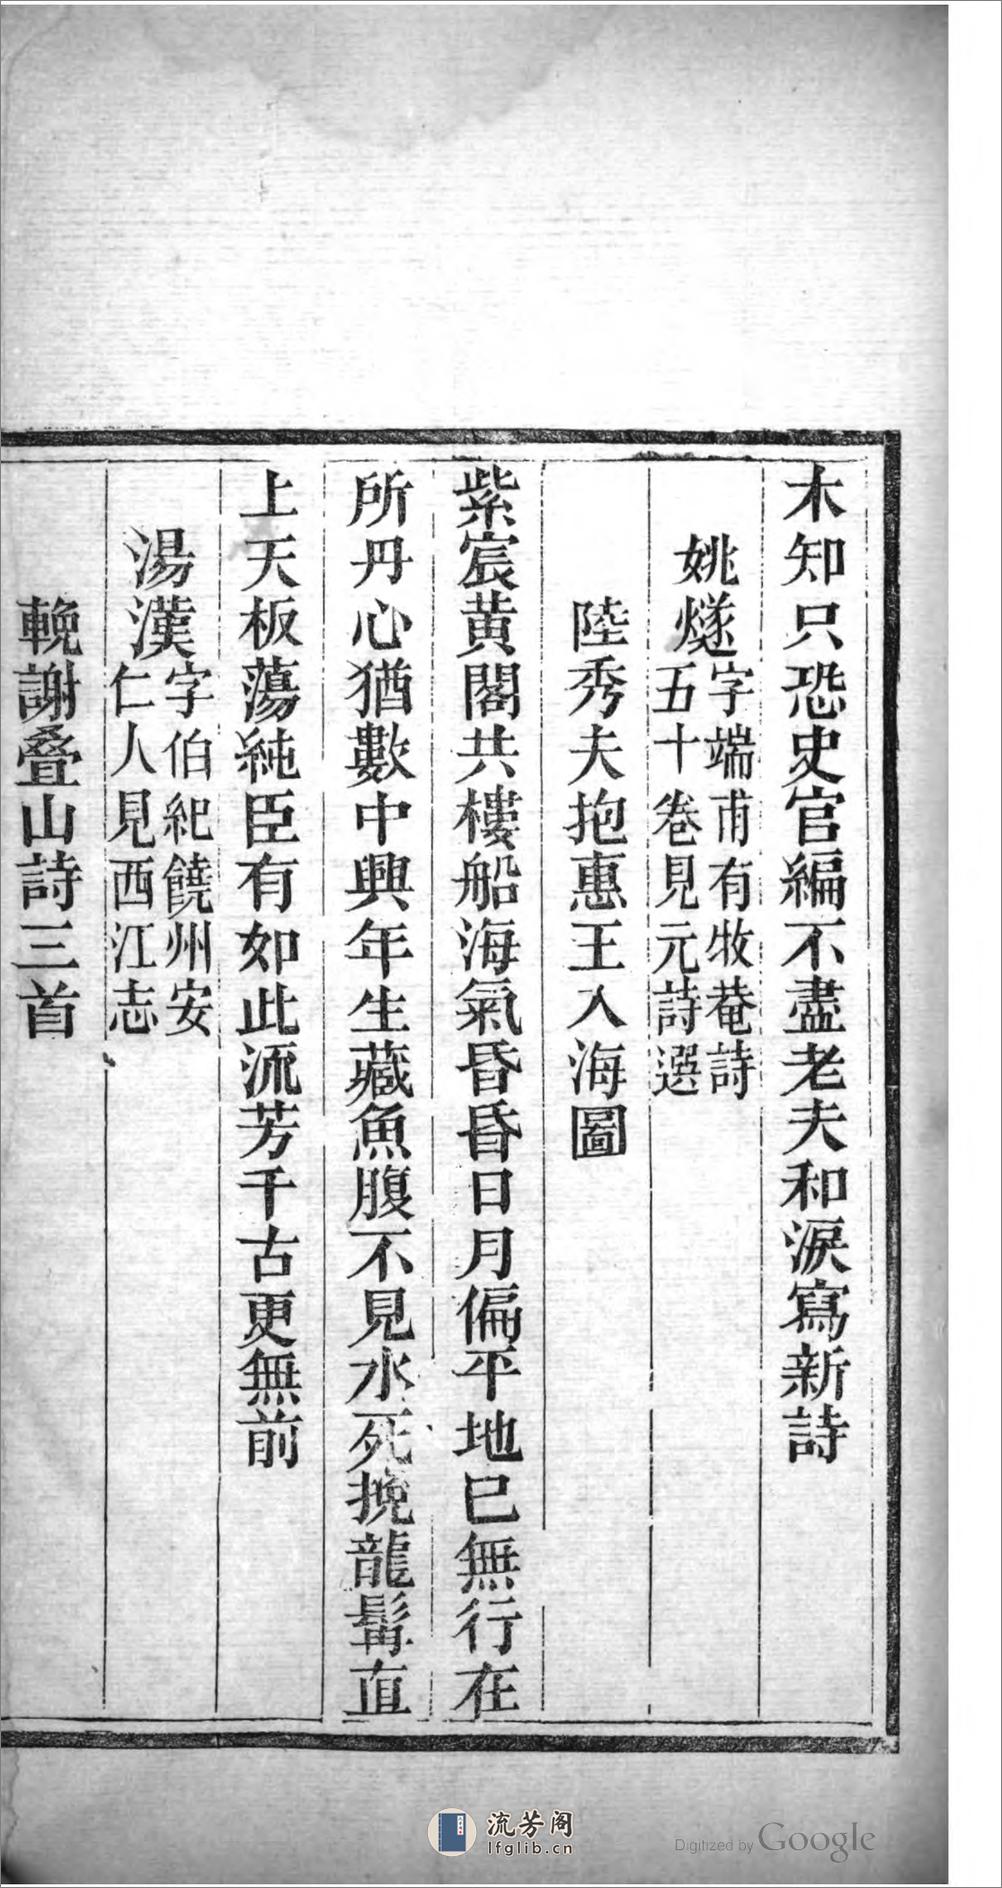 木知只恐史官編不盡老夫和淚寫新詩
姚燧字端甫有牧菴詩
五十卷見元詩選
陸秀夫抱惠王入海圖
紫宸黃閣共樓船海氣昏昏日月偏平地已無行在
所丹心猶數中興年生藏魚腹不見水死挽龍髯直
上天板蕩純臣有如此流芳千古更無前
湯漢字伯紀饒州安
仁人見西江志
輓謝叠山詩三首
流芳阁
lfglib.cn
Digitized by Google